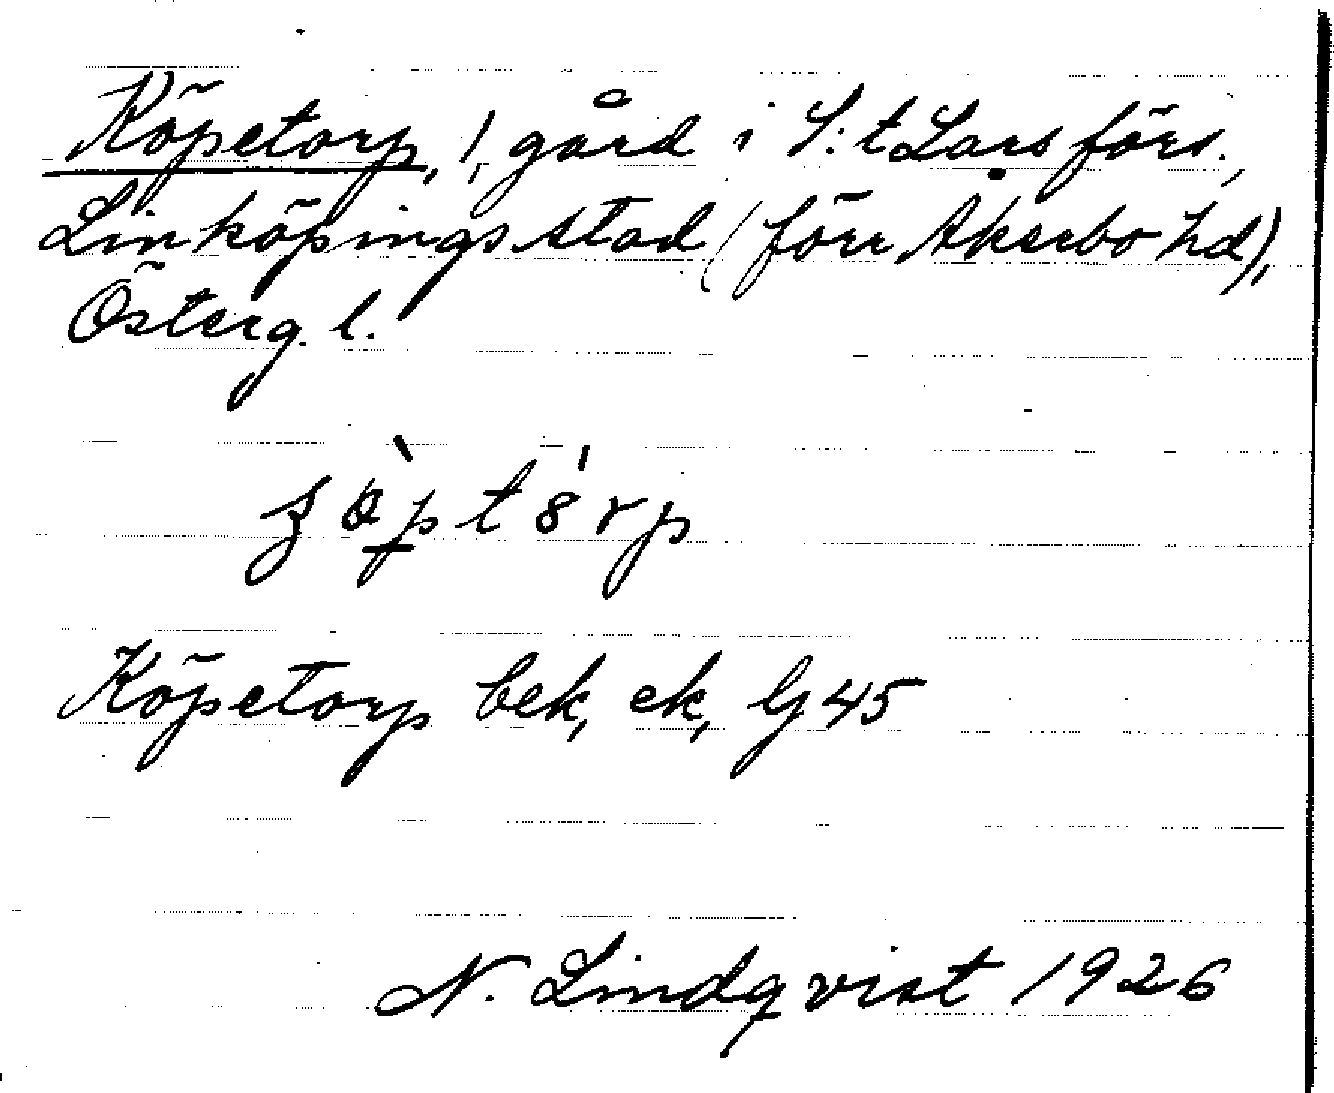 Köpetorp, 1, gård i S:t Lars förs.,
Linköpings stad (förr Åkerbo hd),
Österg. l.
Köpetorp bek, ek, lj 45
N. Lindqvist 1926